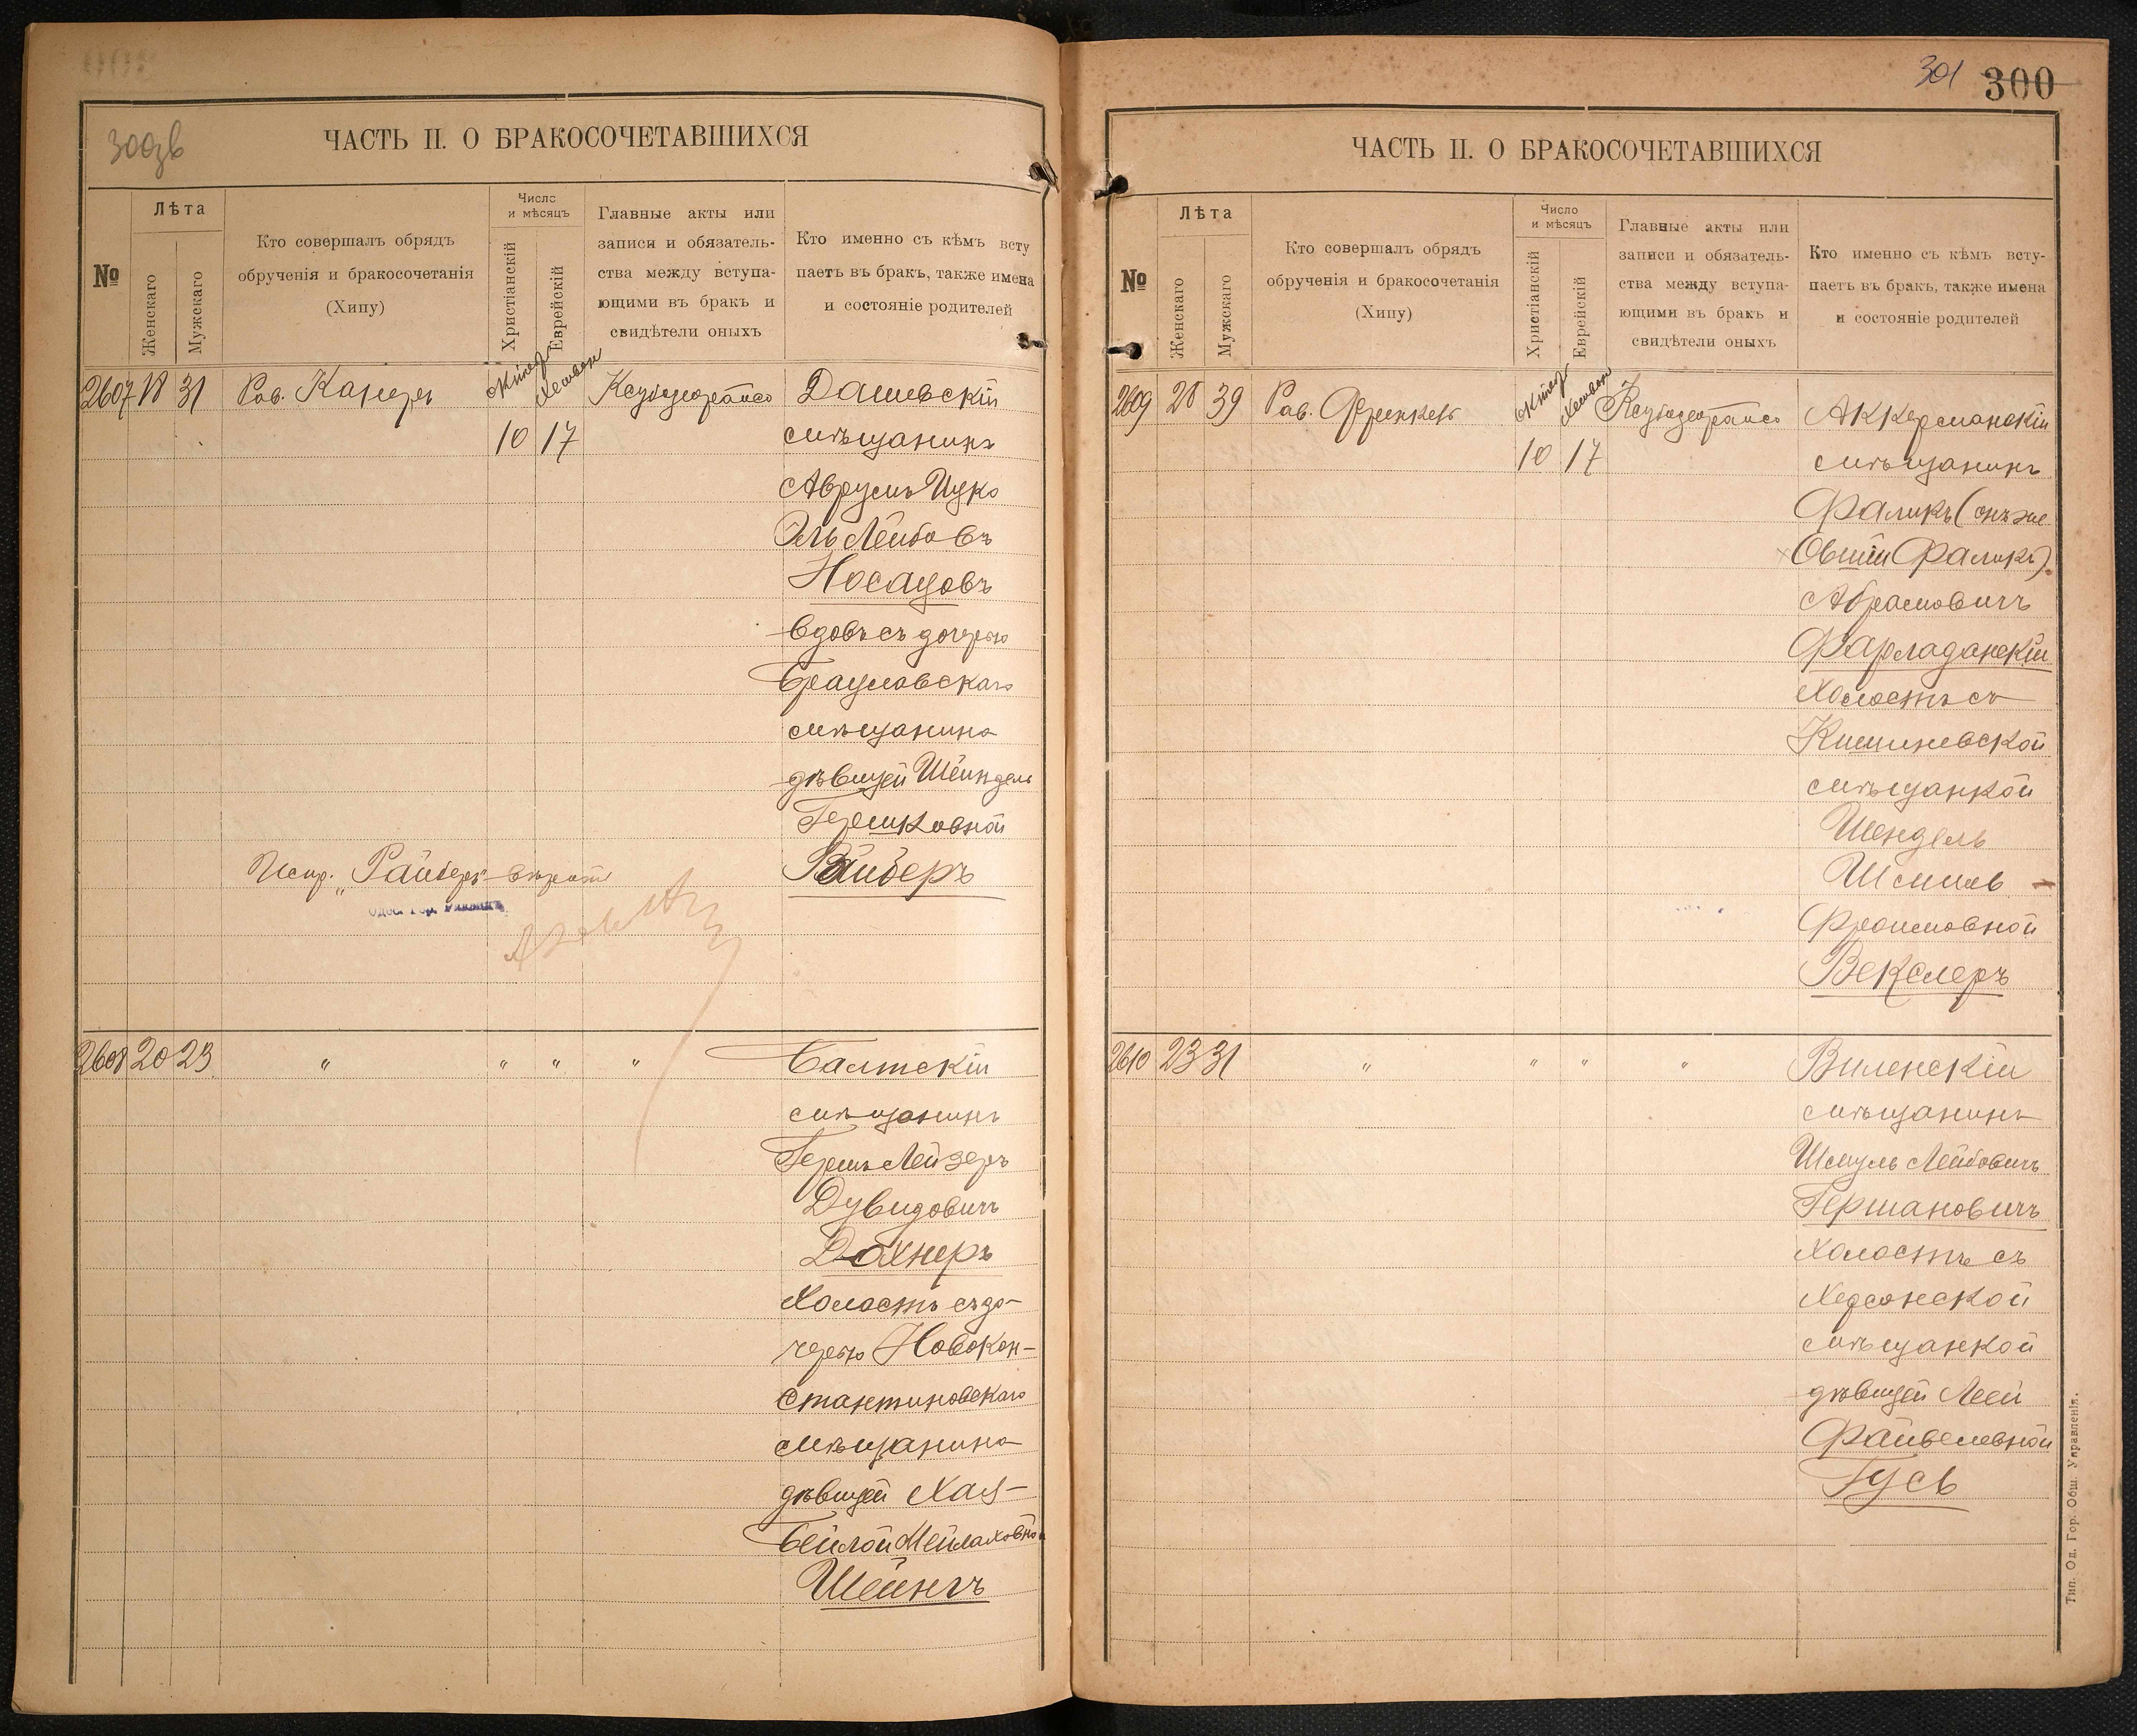 300зв
ЧАСТЬ II. О БРАКОСОЧЕТАВШИХСЯ
№
Лѣта
Женскаго
Мужескаго
Кто совершалъ обрядъ
обрученія и бракосочетанія
(Хипу)
Число
и мѣсяцъ
Христіанскій
Еврейскій
Главные акты или
записи и обязатель-
ства между вступа-
ющими въ бракъ и
свидѣтели оныхъ
Кто именно съ кѣмъ всту
паетъ въ бракъ, также имена
и состояніе родителей
2607 18 31 Рав. Канеръ октяб. Хешван Дашевскій
10 17 мѣщанинъ
Аврумъ Ицко
Эль Лейбовъ
Носацовъ
вдовъ съ дочерью
Брацлавскаго
мѣщанина
дѣвицей Шейндель
Гершковной
Испр. „Райберъ" вѣрить Райберъ
2608 20 23 " " " " Балтскій
мѣщанинъ
Гершъ Лейзеръ
Дувидовичъ
Дохнеръ
Холостъ съ до-
черью Новокон-
стантиновскаго
мѣщанина
дѣвицей Хая-
Бейлой Мейлаховной
Шейнгъ
301 300
ЧАСТЬ II. О БРАКОСОЧЕТАВШИХСЯ
№
Лѣта
Женскаго
Мужскаго
Кто совершалъ обрядъ
обрученія и бракосочетанія
(Хипу)
Число
и мѣсяцъ
Христіанскій
Еврейскій
Главные акты или
записи и обязатель-
ства между вступа-
ющими въ бракъ и
свидѣтели оныхъ
Кто именно съ кѣмъ всту-
паетъ въ бракъ, также имена
и состояніе родителей
2609 28 39 Рав. Френкель октяб. Хешван Аккерманскій
10 17 мѣщанинъ
Фаликъ (онъ же
Овшій Фаликъ)
Абрамовичъ
Фарладанскій
Холостъ съ
Кишиневской
мѣщанкой
Шендель
Шмилев
Фроимовной
Векслеръ
2610 23 31 " " " " Виленскій
мѣщанинъ
Шмуль Лейбовичъ
Гершановичъ
Холостъ съ
Херсонской
мѣщанкой
дѣвицей Леей
Файвелевной
Гусь
Тип. Од. Гор. Общ. Управленія.